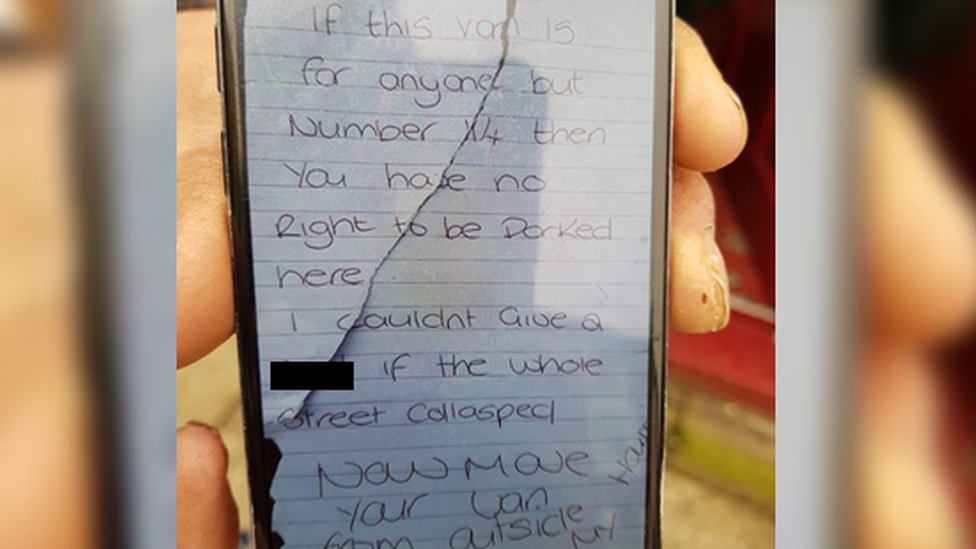 If this van is
for anyone but
Number 14 then
You have no
Right to be Parked
here
I couldnt Give a
if the whole
Street Collasped
Now Move
Your Van
from outside MY
Hous